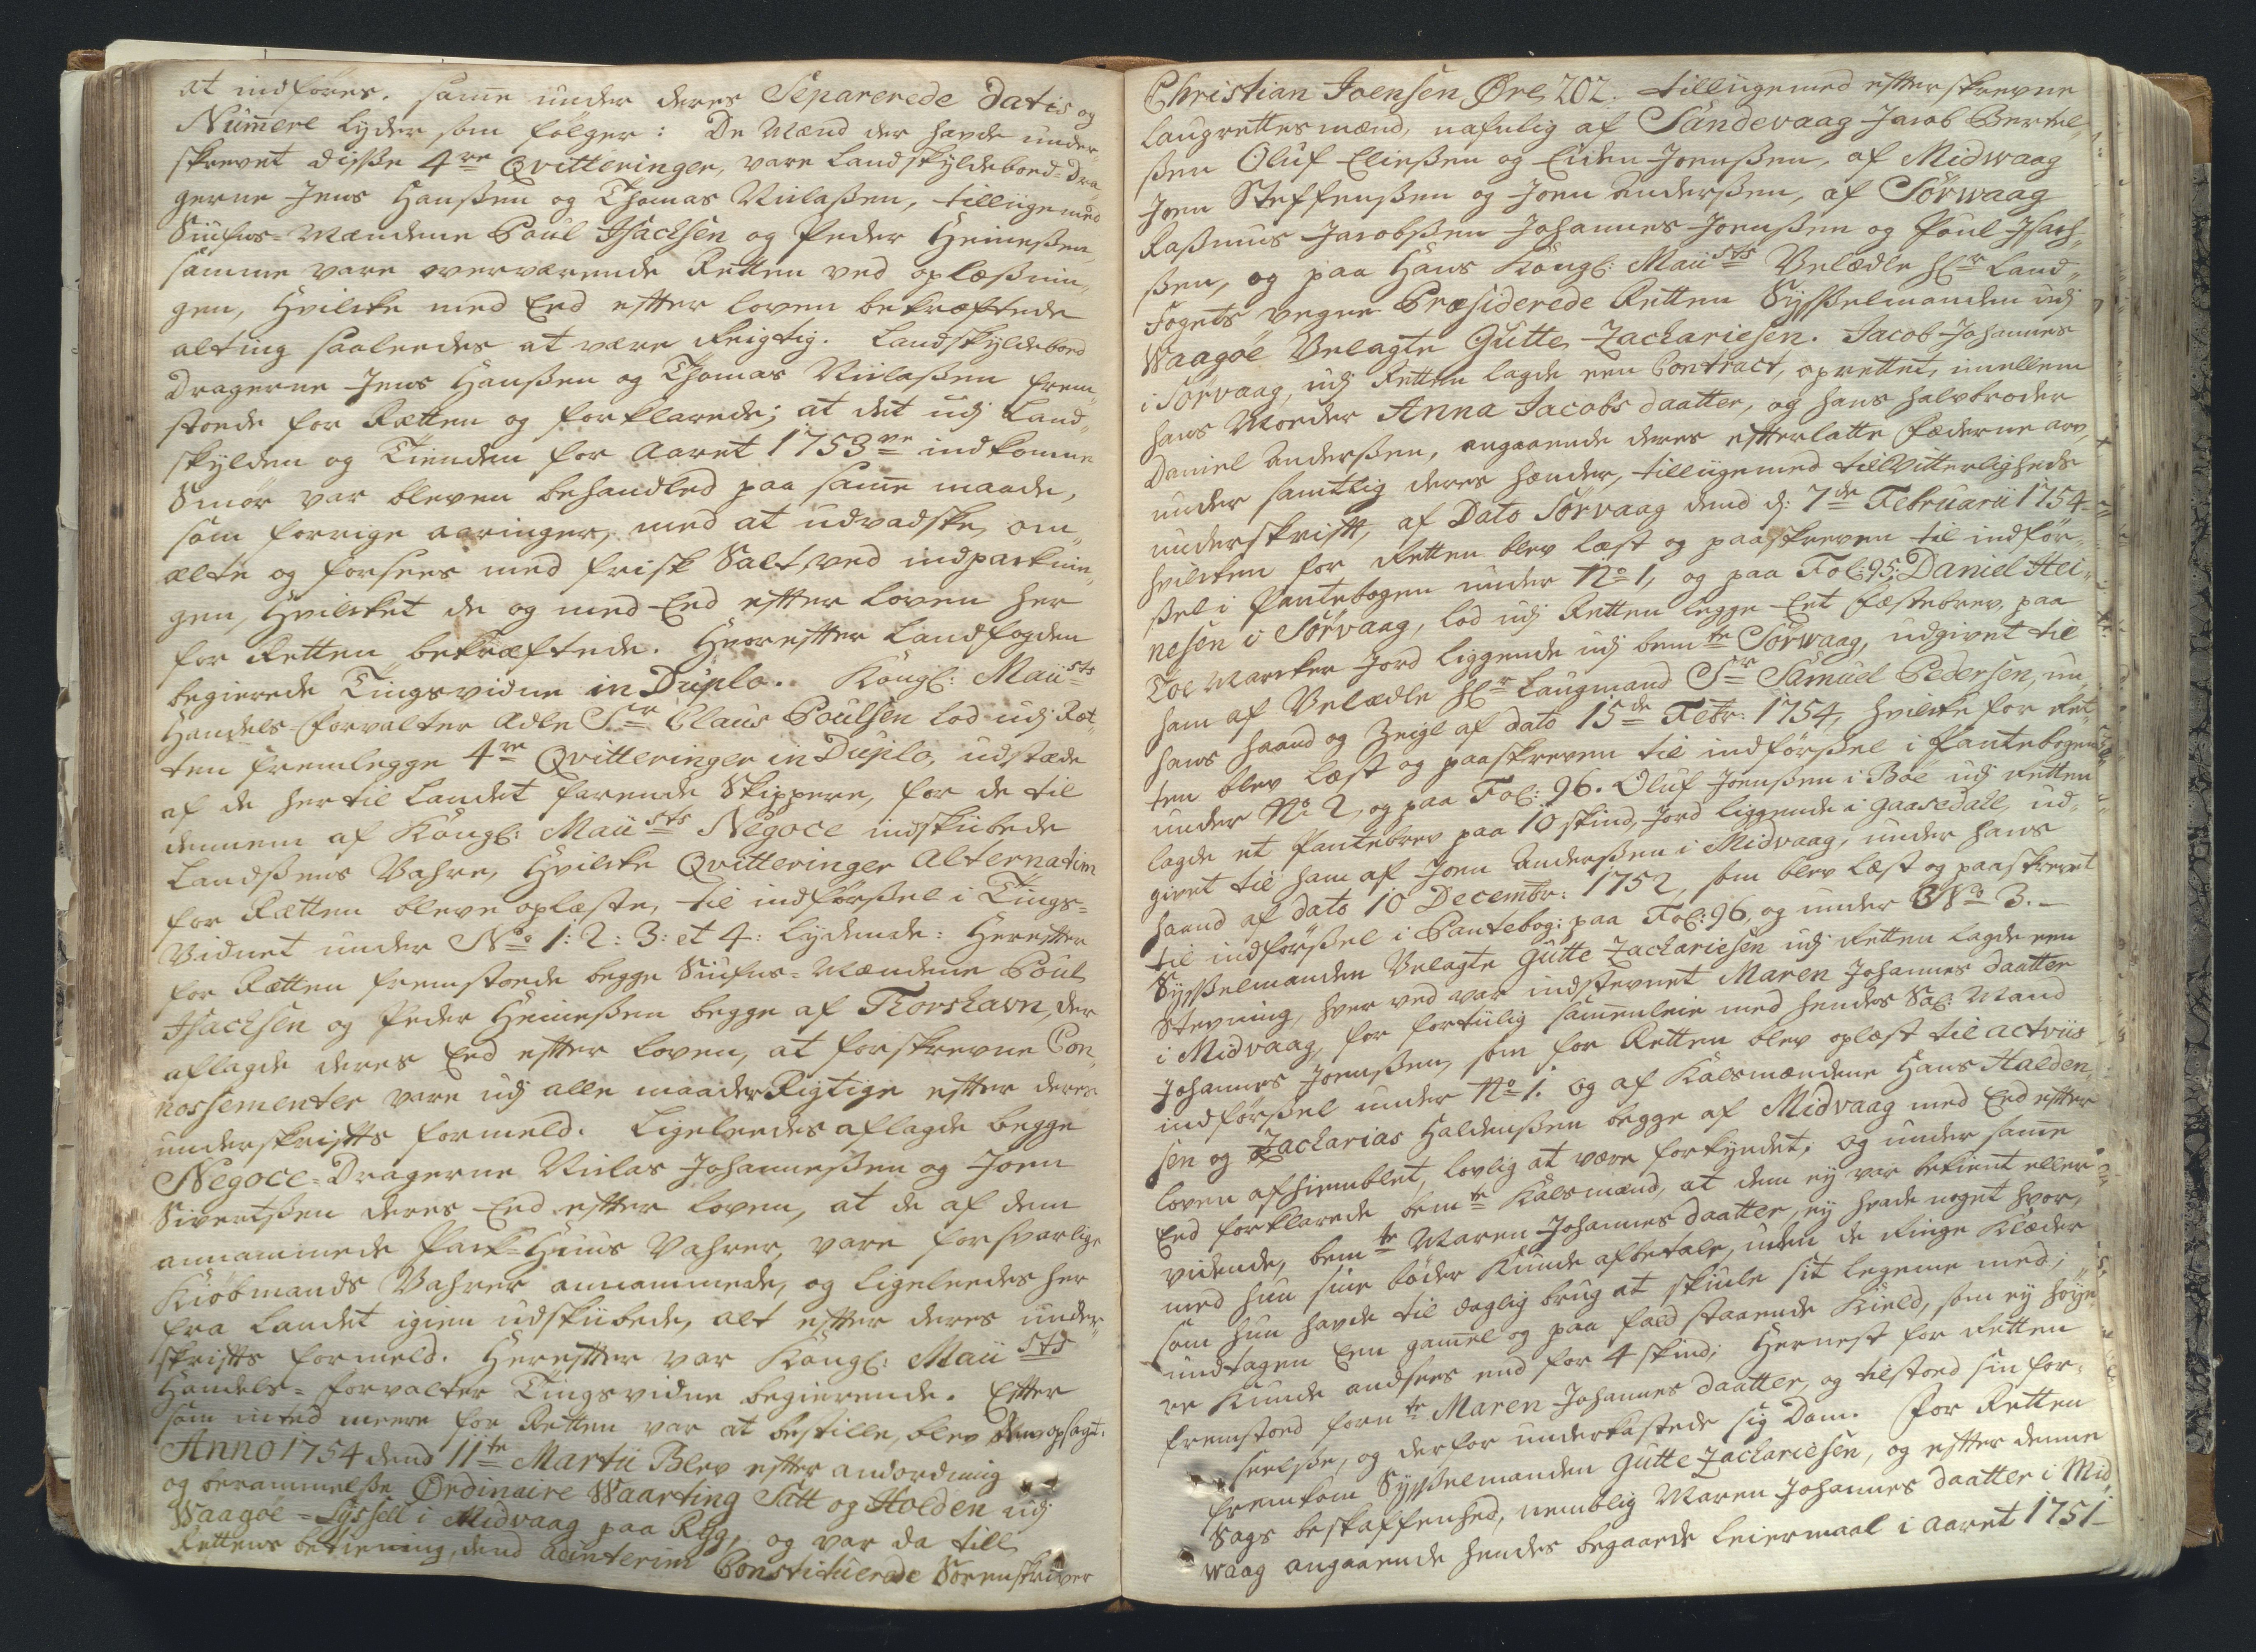 at indføres. samme under deres Separerede Datis og
Numere lyder som følger: De Mænd der havde under-
skrevet disse 4re Qvitteringer, vare Landskyldebord-Dra-
gerne Jens Hanssen og Thomas Niclassen, tilligemed
Siufns-Mændene Poul Isachsen og Peder Heinessen,
samme vare overværende Retten ved oplæsnin-
gen, hvilcke med Eed efter loven bekræftede
alting saaleedes at være Rigtig. Landskyldebord
Dragerne Jens Hanssen og Thomas Niclassen frem-
stoede for Rætten og forklarede; at det udj Land-
skylden og Tienden for Aaret 1753ve indkomne
Smør var bleven behandled paa same maade,
som forrige aaringer, med at udvadske, om-
ælte og forsees med frisk Salt ved indpacknin-
gen, hvilcket de og med Eed efter loven her
for Retten bekræftede. Hvorefter Landfogden
begierede Tingsvidne in Duplo. Kongl: Maiists
Handels-forvalter Ædle Sr Claus Poulsen lod udj Ræt-
ten fremlegge 4re Qvitteringer in Duplo, udstæde
af de her til Landet farende Skippere, for de til
dennem af Kongl: Maiists Negoce indskibede
Landssens Vahre, Hvilcke Qvitteringer Alternatim
for Rætten bleve oplæste, til indførssel i Tings-
Vidnet under No 1: 2: 3: et 4: lydende: Herefter
for Rætten fremstoede begge Siufns-Mændene Poul
Isachsen og Peder Heinessen begge af Thorshavn, der
aflagde deres Eed efter loven, at forskrevne Con-
nossementer vare udj alle maader Rigtige efter deres
underskrifts formeld. Ligeleedes aflagde begge
Negoce-Dragerne Niclas Johannessen og Joen
Sivertssen deres Eed efter loven, at de af dem
annammede Pack-Huus Vahrer, vare forsvarlige
Kiøbmands Vahrer annammede, og ligeleedes her
fra Landet igien udskibede, alt efter deres under-
skrifts formeld. Herefter var Kongl: Maiists
Handels-forvalter Tingsvidne begierende. Efter
som inted meere for Retten var at bestille, blev opsagt.
Anno 1754 dend 11te Martii Blev efter anordning
og berammelse Ordinaire Waarting Satt og Holden udj
Waagøe-Syssell i Midvaag paa Ryg, og var da till
Rettens betiening, dend adinterim Constituerede Sorenskriver
Christian Joensen Øre 202. tilligemed efterskrevne
laugrettesmænd, nafnlig af Sandevaag Jacob Bertel-
ssen Oluf Eliessen og Eiden Joenssen, af Midwaag
Joen Steffenssen og Joen Anderssen, af Sørwaag
Rasmus Jacobssen Johannes Joenssen og Poul Isach-
ssen, og paa Hans Kongl: Maiists Velædle Hr Land-
fogets vegne Præsiderede Retten Sysselmanden udj
Waagøe Velagte Gutte Zachariesen. Jacob Johannes
i Sørvaag, udj Retten lagde een Contract, oprettet, imellem
hans Moeder Anna Jacobs daatter, og hans halvbroder
Daniel Anderssen, angaaende deres efterlatte fæderne arv,
under samtlig deres hænder, tilligemed tilvitterligheds
underskrift, af Dato Sørvaag dend d: 7de Februarii 1754
hvilcken for Retten blev læst og paaskreven til indfør-
ssel i Pantebogen under No 1, og paa Fol: 95. Daniel Hei-
nesen i Sørvaag, lod udj Retten legge Eet fæstebrev paa
Toe Marcker Jord liggende udj bemte Sørwaag, udgivet til
ham af Velædle Hr Laugmand Sr Samuel Pedersen, un-
hans haand og Zeigl af dato 15de Febr: 1754, hvilcke for Ret-
ten blev læst og paaskreven til indførssel i Pantebogen
under No 2, og paa Fol: 96. Oluf Joenssen i Bøe udj Retten
lagde et Pantebrev paa 10 skind, Jord liggende i Gaasedall, ud-
givet til ham af Joen Anderssen i Midvaag, under hans
haand af dato 10 Decembr: 1752, som blev læst og paaskrevet
til indførssel i Pantebog: paa Fol: 96, og under No 3.
Sysselmanden Velagte Gutte Zachariesen udj Retten lagde een
Stevning, hver ved var indstevnet Maren Johannes daatter
i Midvaag, for fortiilig samenleie med hendes Sal: Mand
Johannes Joenssen, som for Retten blev oplæst til actviis
indførssel under No 1. og af Kalsmændene Hans Halden-
sen og Zacharias Haldenssen begge af Midvaag med Eed efter
loven afhiemblet, lovlig at være forkyndet; og under same
Eed forklarede bemte Kalsmænd, at dem ey var bekient eller
vidende, bemte Maren Johannes daatter, ey havde noget hvor,
med hun sine bøder kunde afbetale, uden de Ringe Klæder
som hun havde til daglig brug at skiule sit legeme med;
undtagen Een gamel og paa fald staaende Kield, som ey høye-
re kunde andsees end for 4 skind; Hernest for Retten
fremstoed fornte Maren Johannes daatter, og tilstoed sin for-
seelsse, og derfor underkastede sig Dom. For Retten
fremkom Sysselmanden Gutte Zachariesen, og efter denne
Sags beskaffenhed, nemblig Maren Johannes daatter i Mid-
waag angaaende hendes begaaede leiermaal i aaret 1751